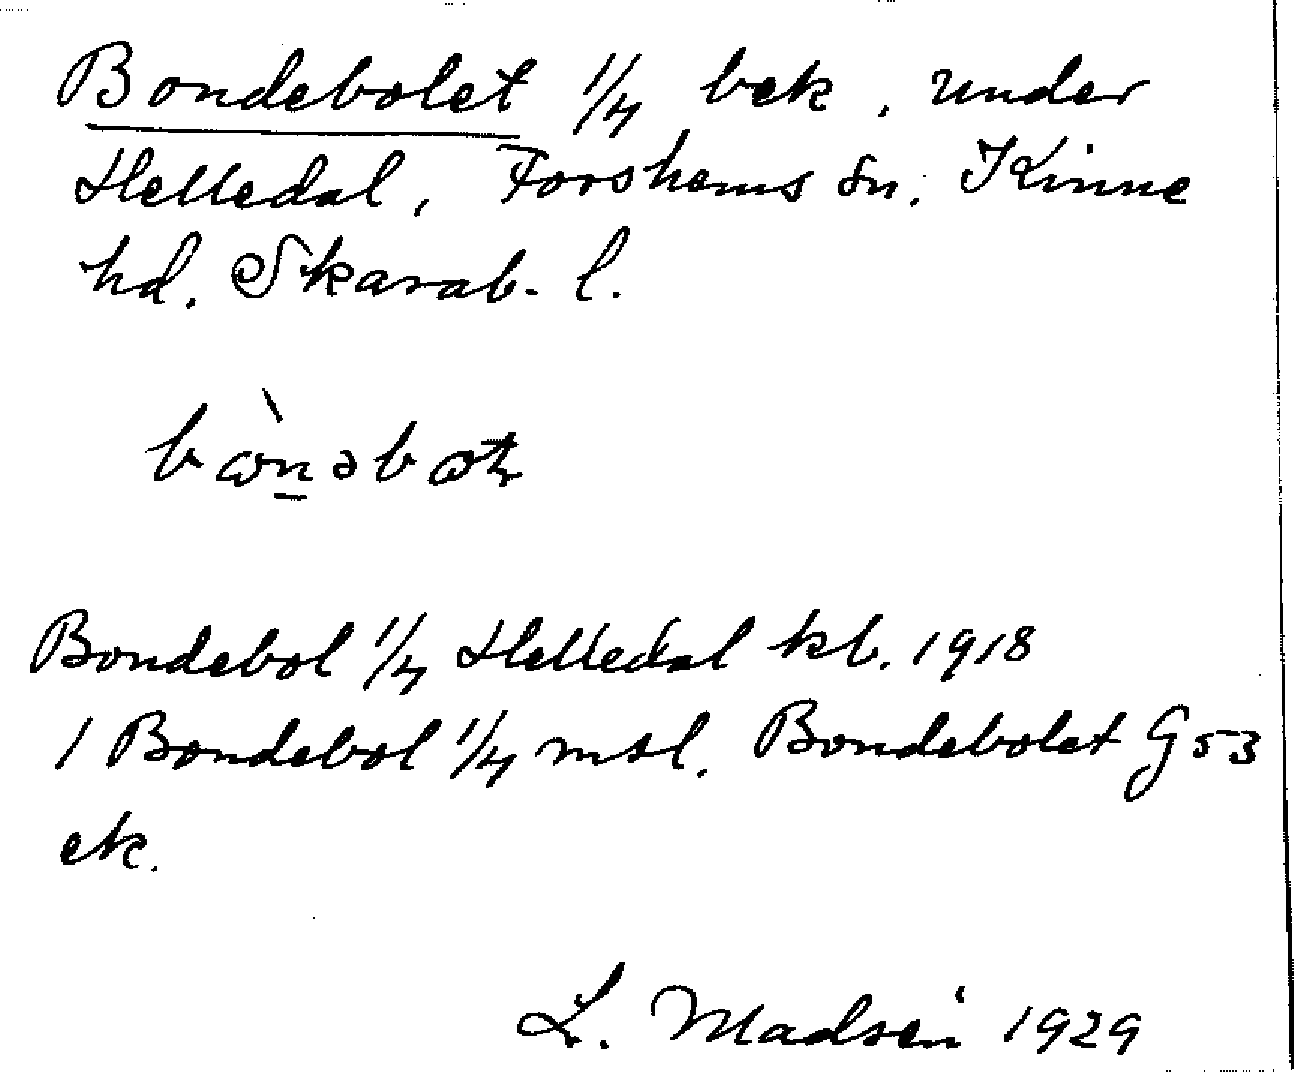 Bondebolet 1/4 bek, under
Helledal, Forshems sn. Kinne
hd. Skarab. l.
Bondebol 1/4 Helledal kb. 1918
1 Bondebol 1/4 msl. Bondebolet G53
ek.
L. Madsén 1929